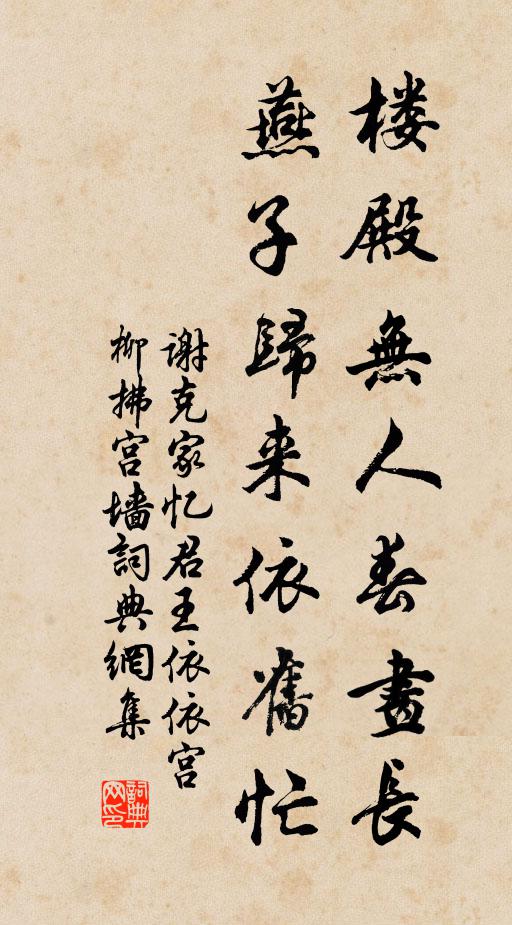 楼殿無人春晝長
燕子歸来依舊忙
谢克家忆君王依依宫
柳拂宫墙詞典網集
詞典
网印